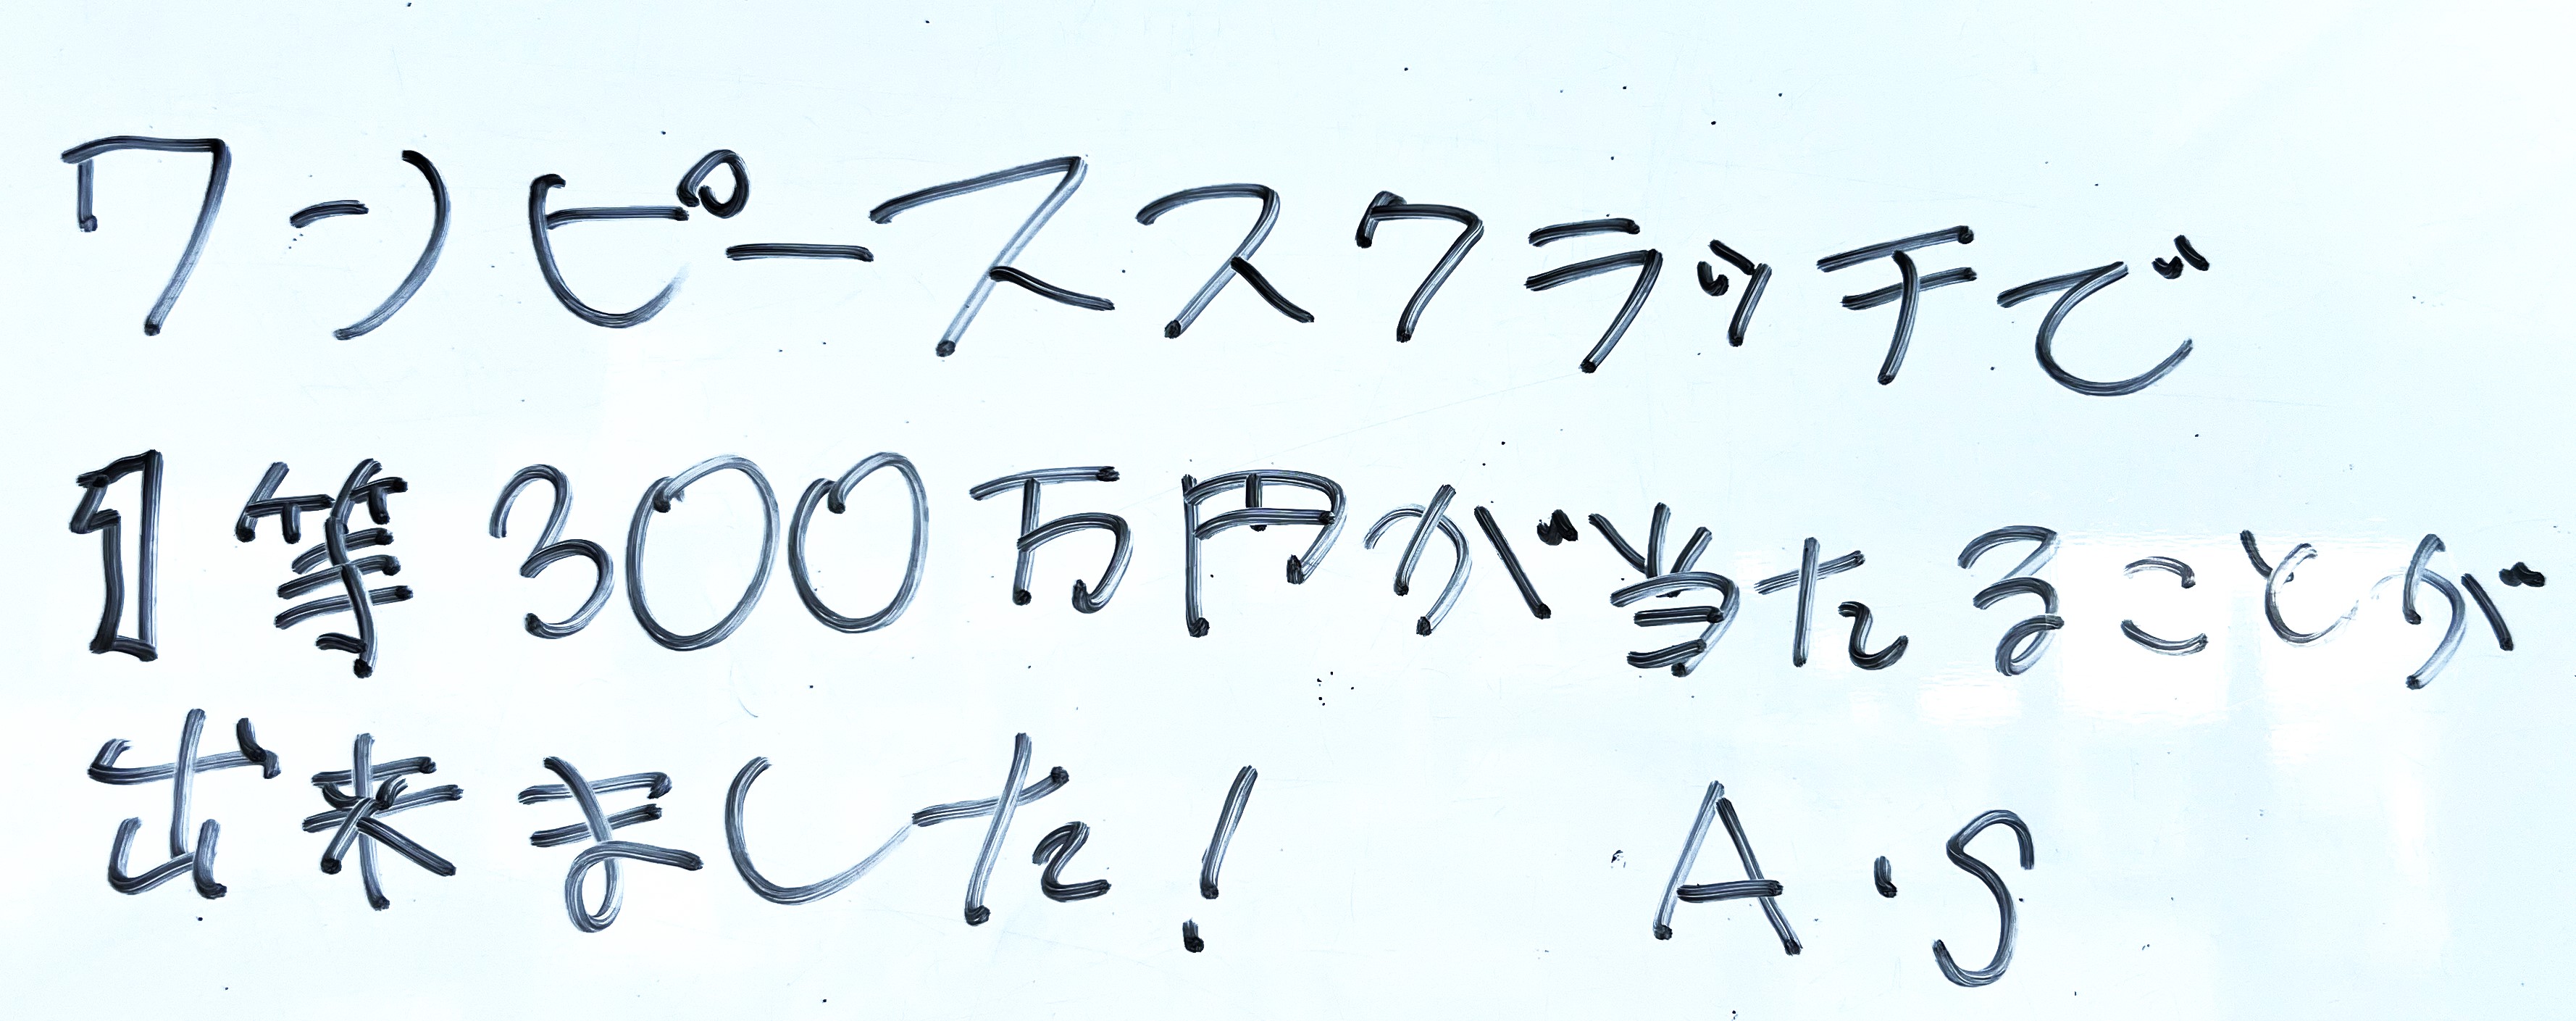 ワンピーススクラッチで
1等300万円が当たることが
出来ました! A・S